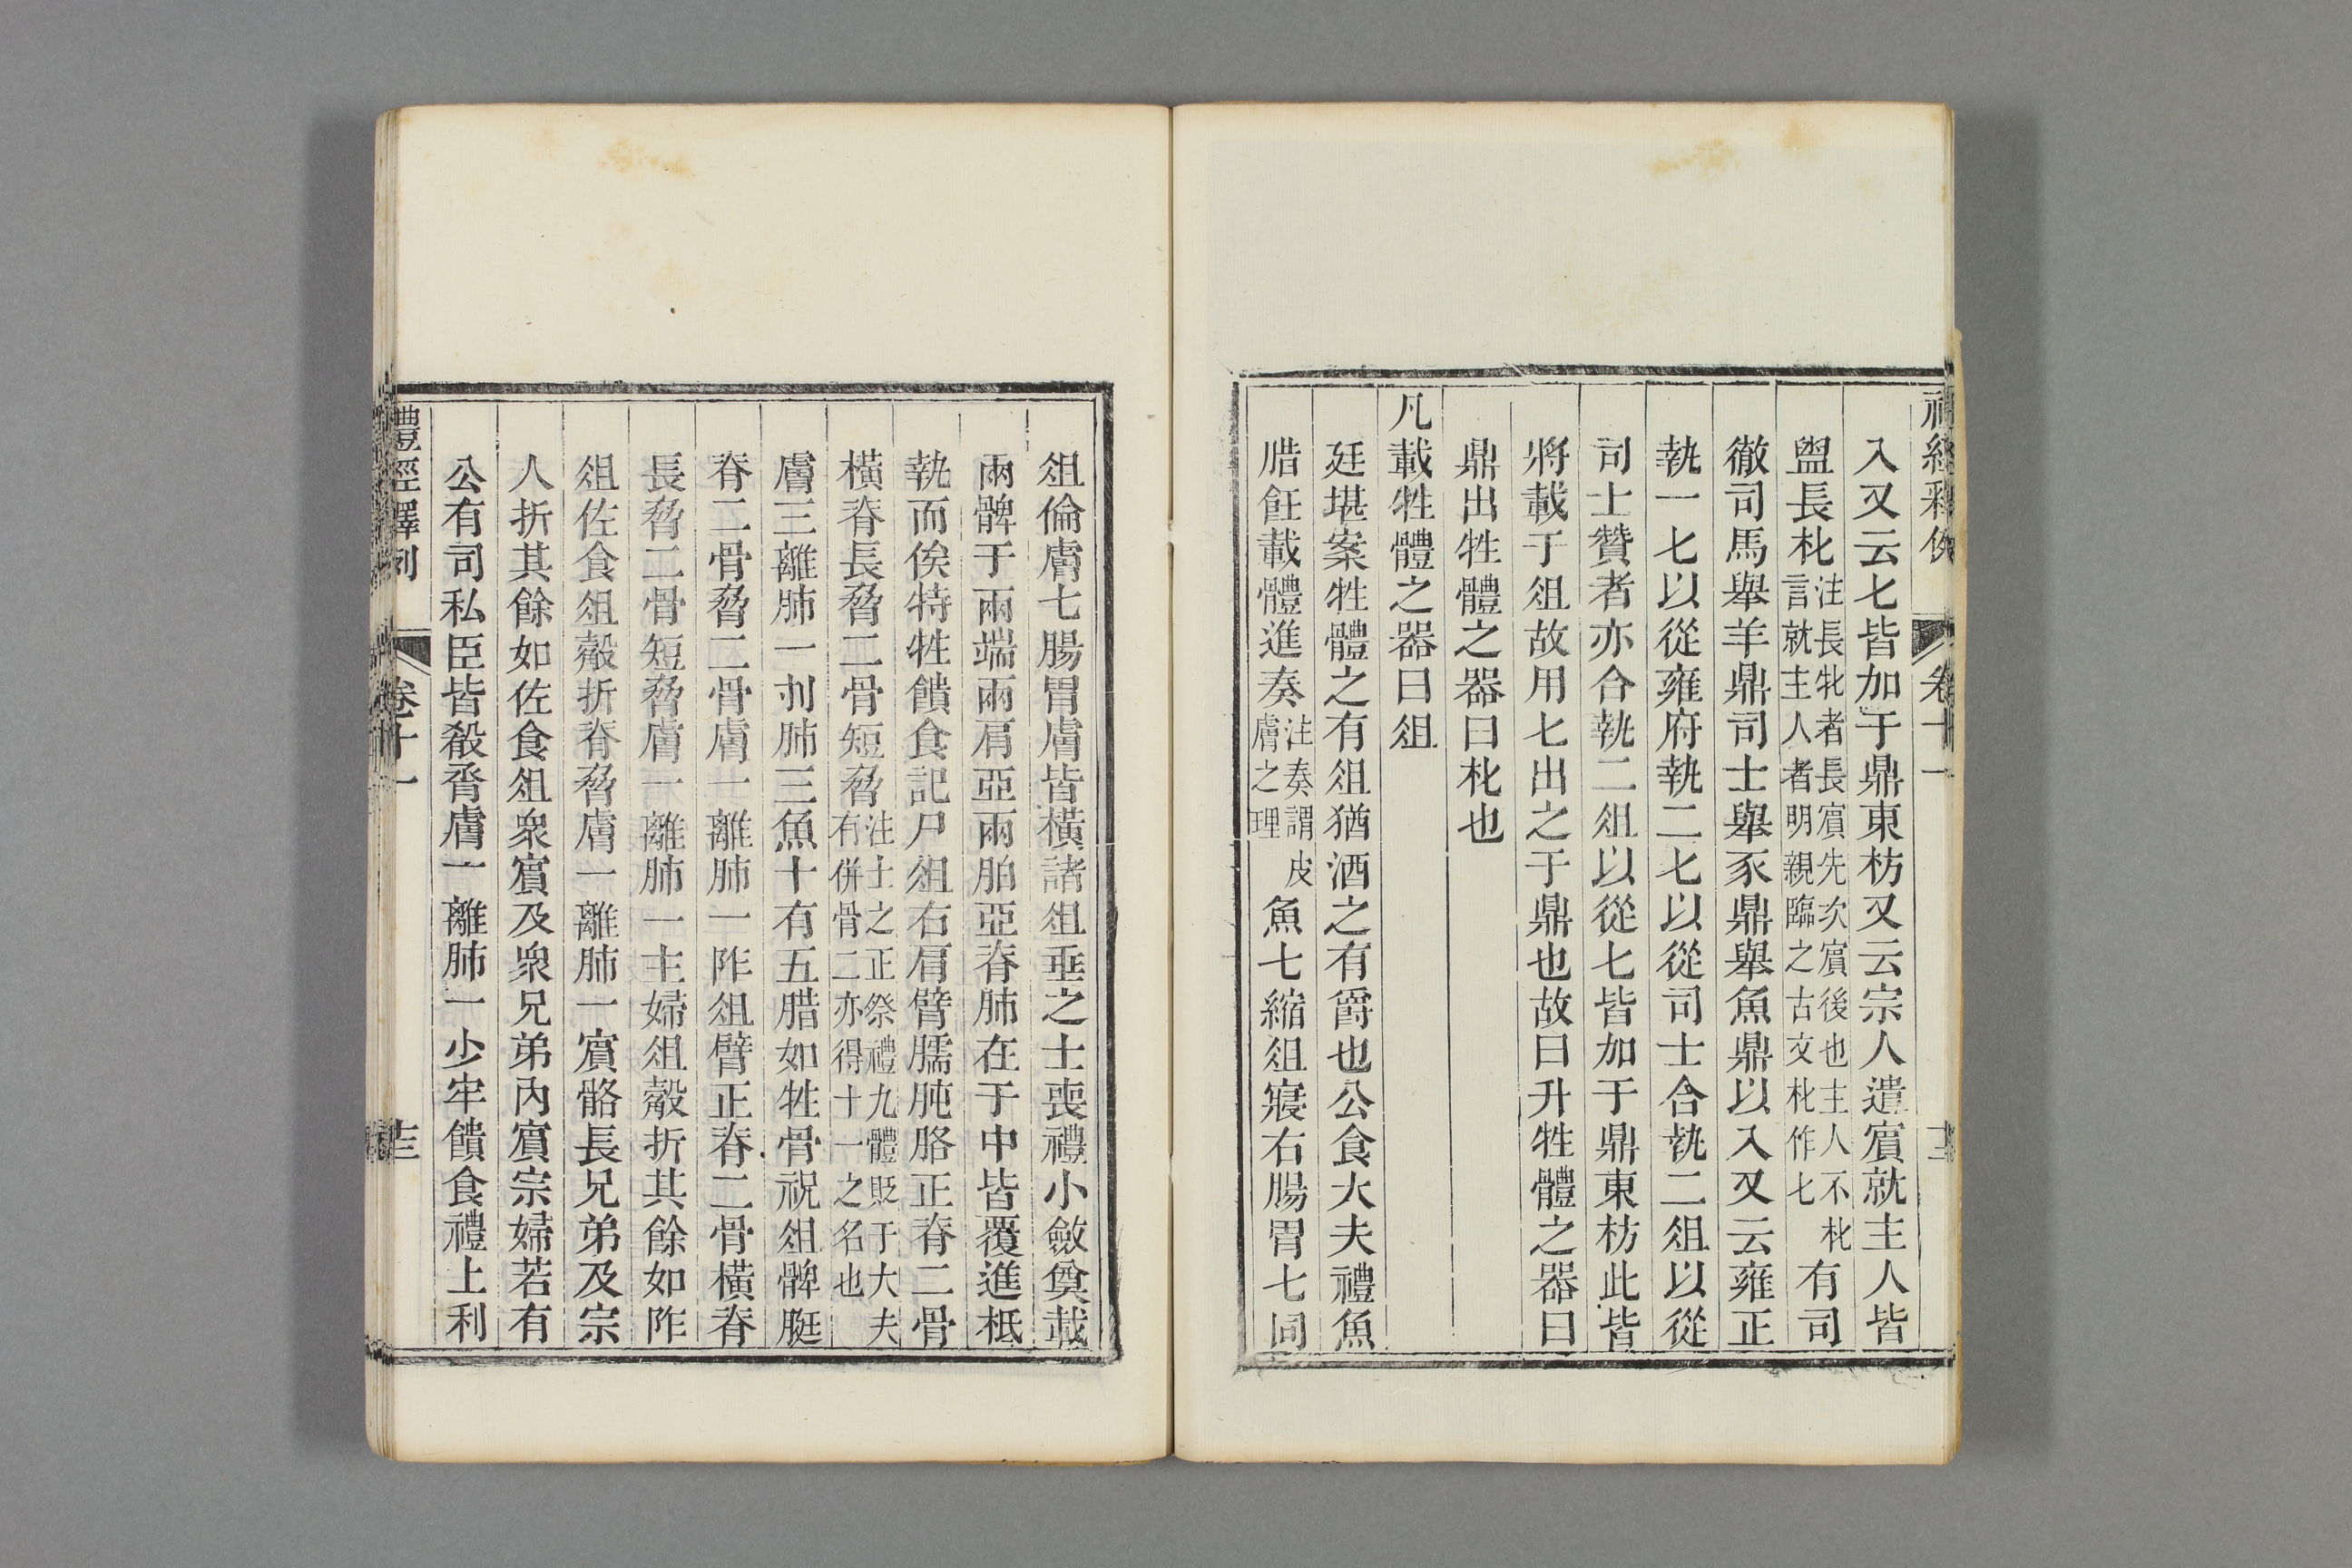 禮經釋例 卷十一 十三
入又云匕皆加于鼎東枋又云宗人遣賓就主人皆
盥長朼注長朼者長賓先次賓後也主人不朼言就主人者明親臨之古文朼作匕有司
徹司馬舉羊鼎司士舉豕鼎舉魚鼎以入又云雍正
執一匕以從雍府執二匕以從司士合執二俎以從
司士贊者亦合執二俎以從匕皆加于鼎東枋此皆
將載于俎故用匕出之于鼎也故曰升牲體之器曰
鼎出牲體之器曰朼也
凡載牲體之器曰俎
廷堪案牲體之有俎猶酒之有爵也公食大夫禮魚
腊飪載體進奏注奏謂皮膚之理魚七縮俎寢右腸胃七同
俎倫膚七腸胃膚皆橫諸俎垂之士喪禮小斂奠載
兩髀于兩端兩肩亞兩胉亞脊肺在于中皆覆進柢
執而俟特牲饋食記尸俎右肩臂臑肫胳正脊二骨
橫脊長脅二骨短脅注士之正祭禮九體貶于大夫有併骨二亦得十一之名也
膚三離肺一刌肺三魚十有五腊如牲骨祝俎髀脡
脊二骨脅二骨膚一離肺一阼俎臂正脊二骨橫脊
長脅二骨短脅膚一離肺一主婦俎觳折其餘如阼
俎佐食俎觳折脊脅膚一離肺一賓骼長兄弟及宗
人折其餘如佐食俎眾賓及眾兄弟內賓宗婦若有
公有司私臣皆殽脀膚一離肺一少牢饋食禮上利
禮經釋例 卷十一